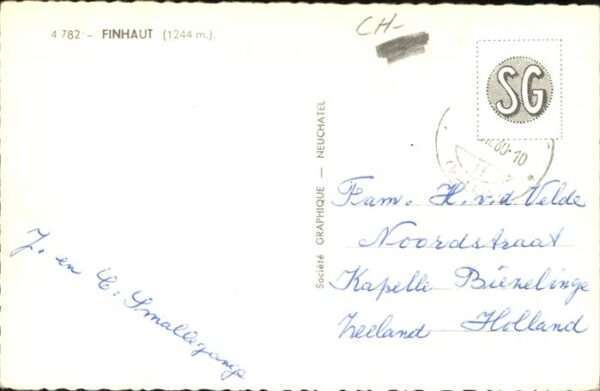 4 782 - FINHAUT (1244 m.).
CH-
SG
60-10
Société GRAPHIQUE — NEUCHATEL
Fam. H. v. d Velde
Noordstraat
Kapelle Biezelinge
Zeeland Holland
J. en C. Smallegange